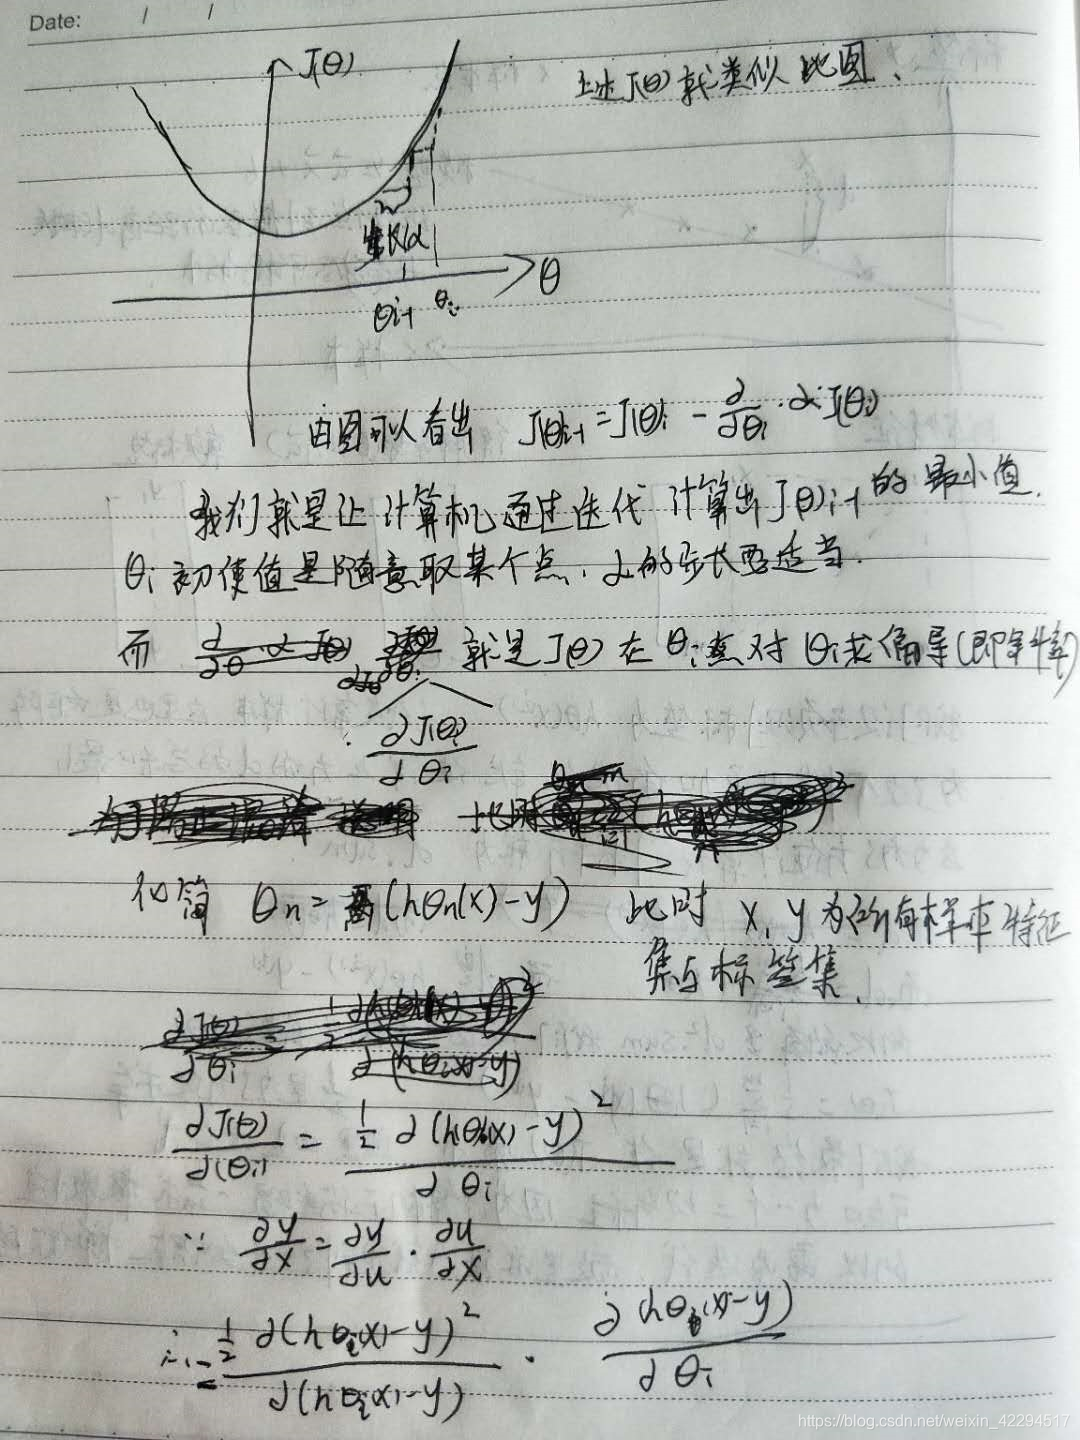 Date: / /
J(θ)
上述J(θ)就类似地图.
步长α
θ
θi-1 θi
由图可以看出 J(θ)i-1 = J(θ)i - ∂/∂θi · α · J(θi)
我们就是让计算机通过迭代计算出J(θ)i-1的最小值.
θi初使值是随意取某个点, α的步长要适当.
而 就是J(θ)在θi点对θi求偏导(即斜率)
∂J(θi)/∂θi
此时
化简 θn = (hθn(x)-y) 此时 x, y为所有样本特征
集与标签集.
∂J(θ)/∂(θi) = 1/2 ∂(hθi(x)-y)²/∂θi
∵ ∂y/∂x = ∂y/∂u · ∂u/∂x
∴ = 1/2 ∂(hθi(x)-y)²/∂(hθi(x)-y) · ∂(hθi(x)-y)/∂θi
https://blog.csdn.net/weixin_42294517